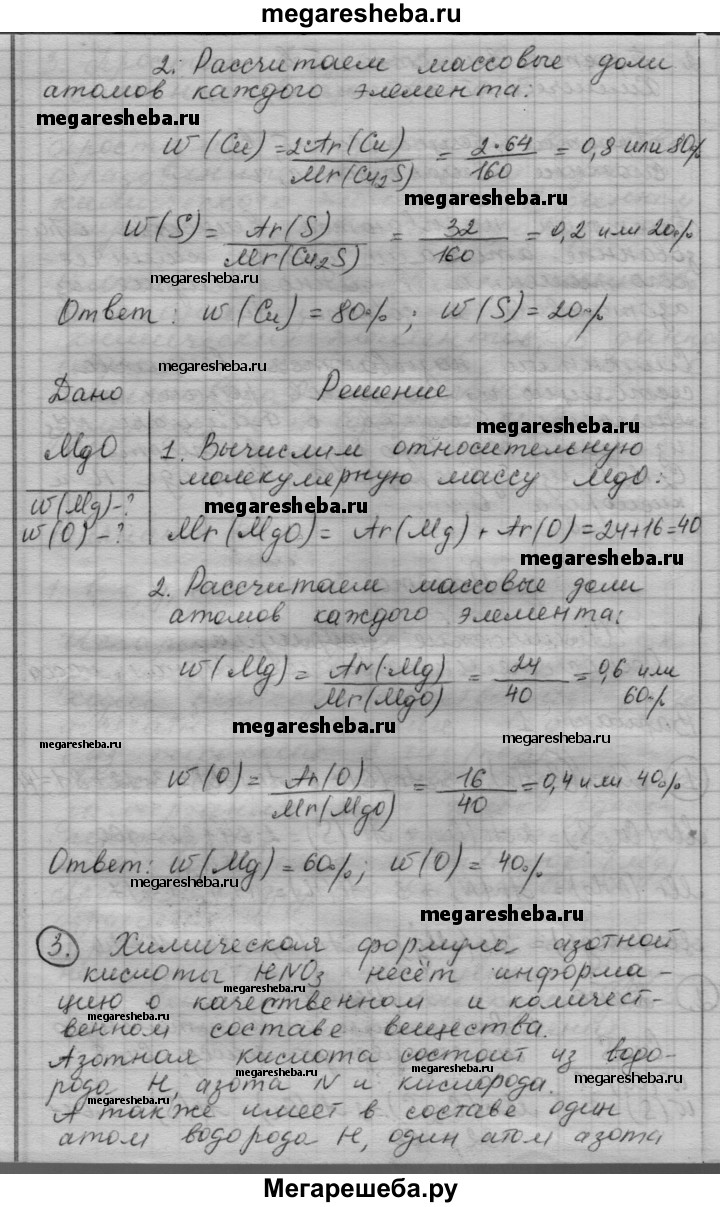 megaresheba.ru
2. Рассчитаем массовые доли
атомов каждого элемента:
megaresheba.ru
W (Cu) = 2·Ar(Cu) / Mr(Cu2S) = 2·64 / 160 = 0,8 или 80%
megaresheba.ru
W(S) = Ar(S) / Mr(Cu2S) = 32 / 160 = 0,2 или 20%
megaresheba.ru
Ответ: W (Cu) = 80%; W (S) = 20%
megaresheba.ru
Дано Решение
megaresheba.ru
MgO 1. Вычислим относительную
молекулярную массу MgO:
W(Mg)-? megaresheba.ru
W(O)-? Mr(MgO) = Ar(Mg) + Ar(O) = 24+16=40
megaresheba.ru
2. Рассчитаем массовые доли
атомов каждого элемента:
W(Mg) = Ar(Mg) / Mr(MgO) = 24 / 40 = 0,6 или
60%
megaresheba.ru
megaresheba.ru megaresheba.ru
W(O) = Ar(O) / Mr(MgO) = 16 / 40 = 0,4 или 40%
Ответ: W(Mg) = 60%; W(O) = 40%
megaresheba.ru
megaresheba.ru
3. Химическая формула азотной
кислоты HNO3 несёт информа-
megaresheba.ru
цию о качественном и количест-
megaresheba.ru
венном составе вещества.
Азотная кислота состоит из водо-
megaresheba.ru megaresheba.ru
рода H, азота N и кислорода.
megaresheba.ru megaresheba.ru
А также имеет в составе один
атом водорода H, один атом азота
Мегарешеба.ру